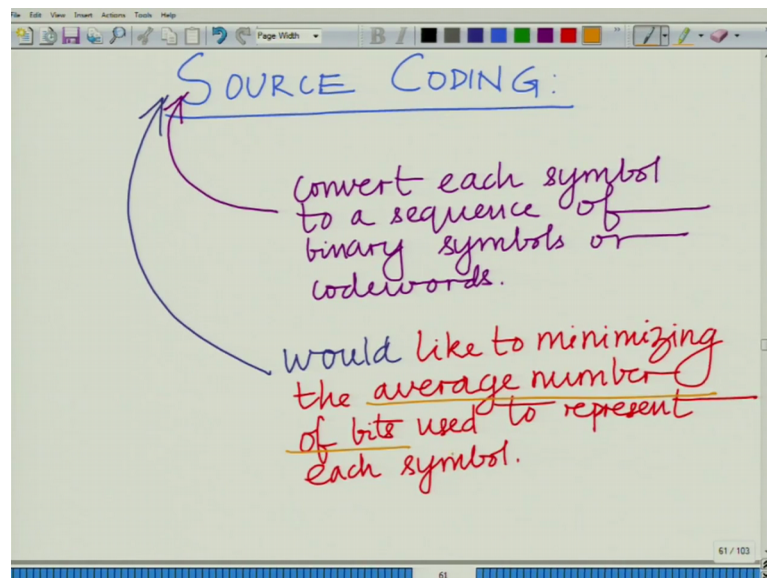 File Edit View Insert Actions Tools Help
Page Width
B I
SOURCE CODING:
convert each symbol
to a sequence of
binary symbols or
codewords.
would like to minimizing
the average number
of bits used to represent
each symbol.
61 / 103
61